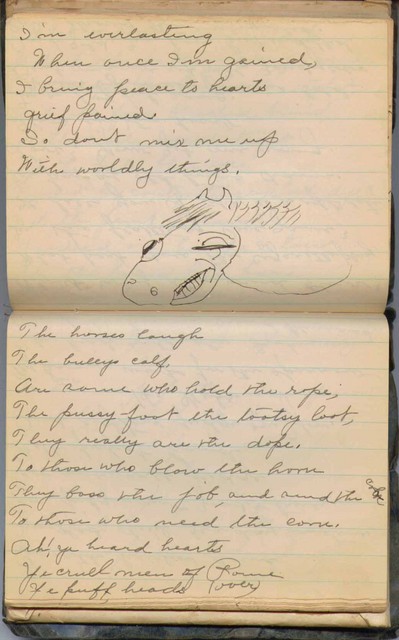 I'm everlasting
When once I'm gained,
I bring peace to hearts
grief pained.
So dont mix me up
With worldly things.
The horses laugh
The bulleys calf.
Are some who hold the rope;
The pussy foot the tootsy loot,
They really are the dope.
To those who blow the horn
They boss the job, and the
To those who need the corn.
Ah', ye heard hearts
Ye cruel men of Rome
Ye puff heads (over)